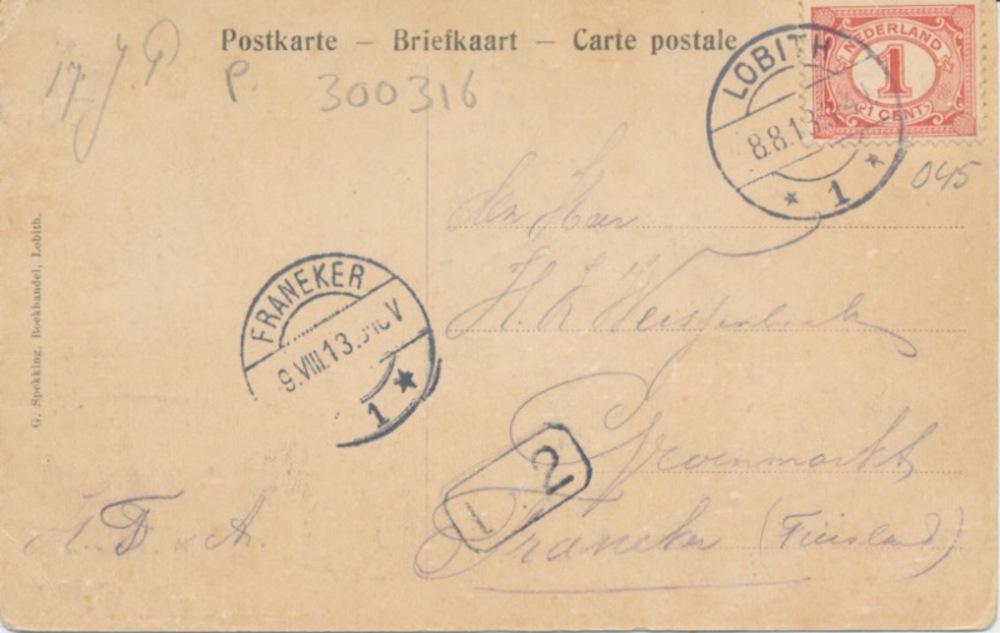 Postkarte – Briefkaart – Carte postale
17.
P. 300316
LOBITH
8.8.13
1
NEDERLAND
1
1 CENT
045
Den Heer
H. L.
Groenmarkt
Franeker (Friesland)
FRANEKER
9.VIII.13. V
1
1 2
G. Spekking, Boekhandel, Lobith.